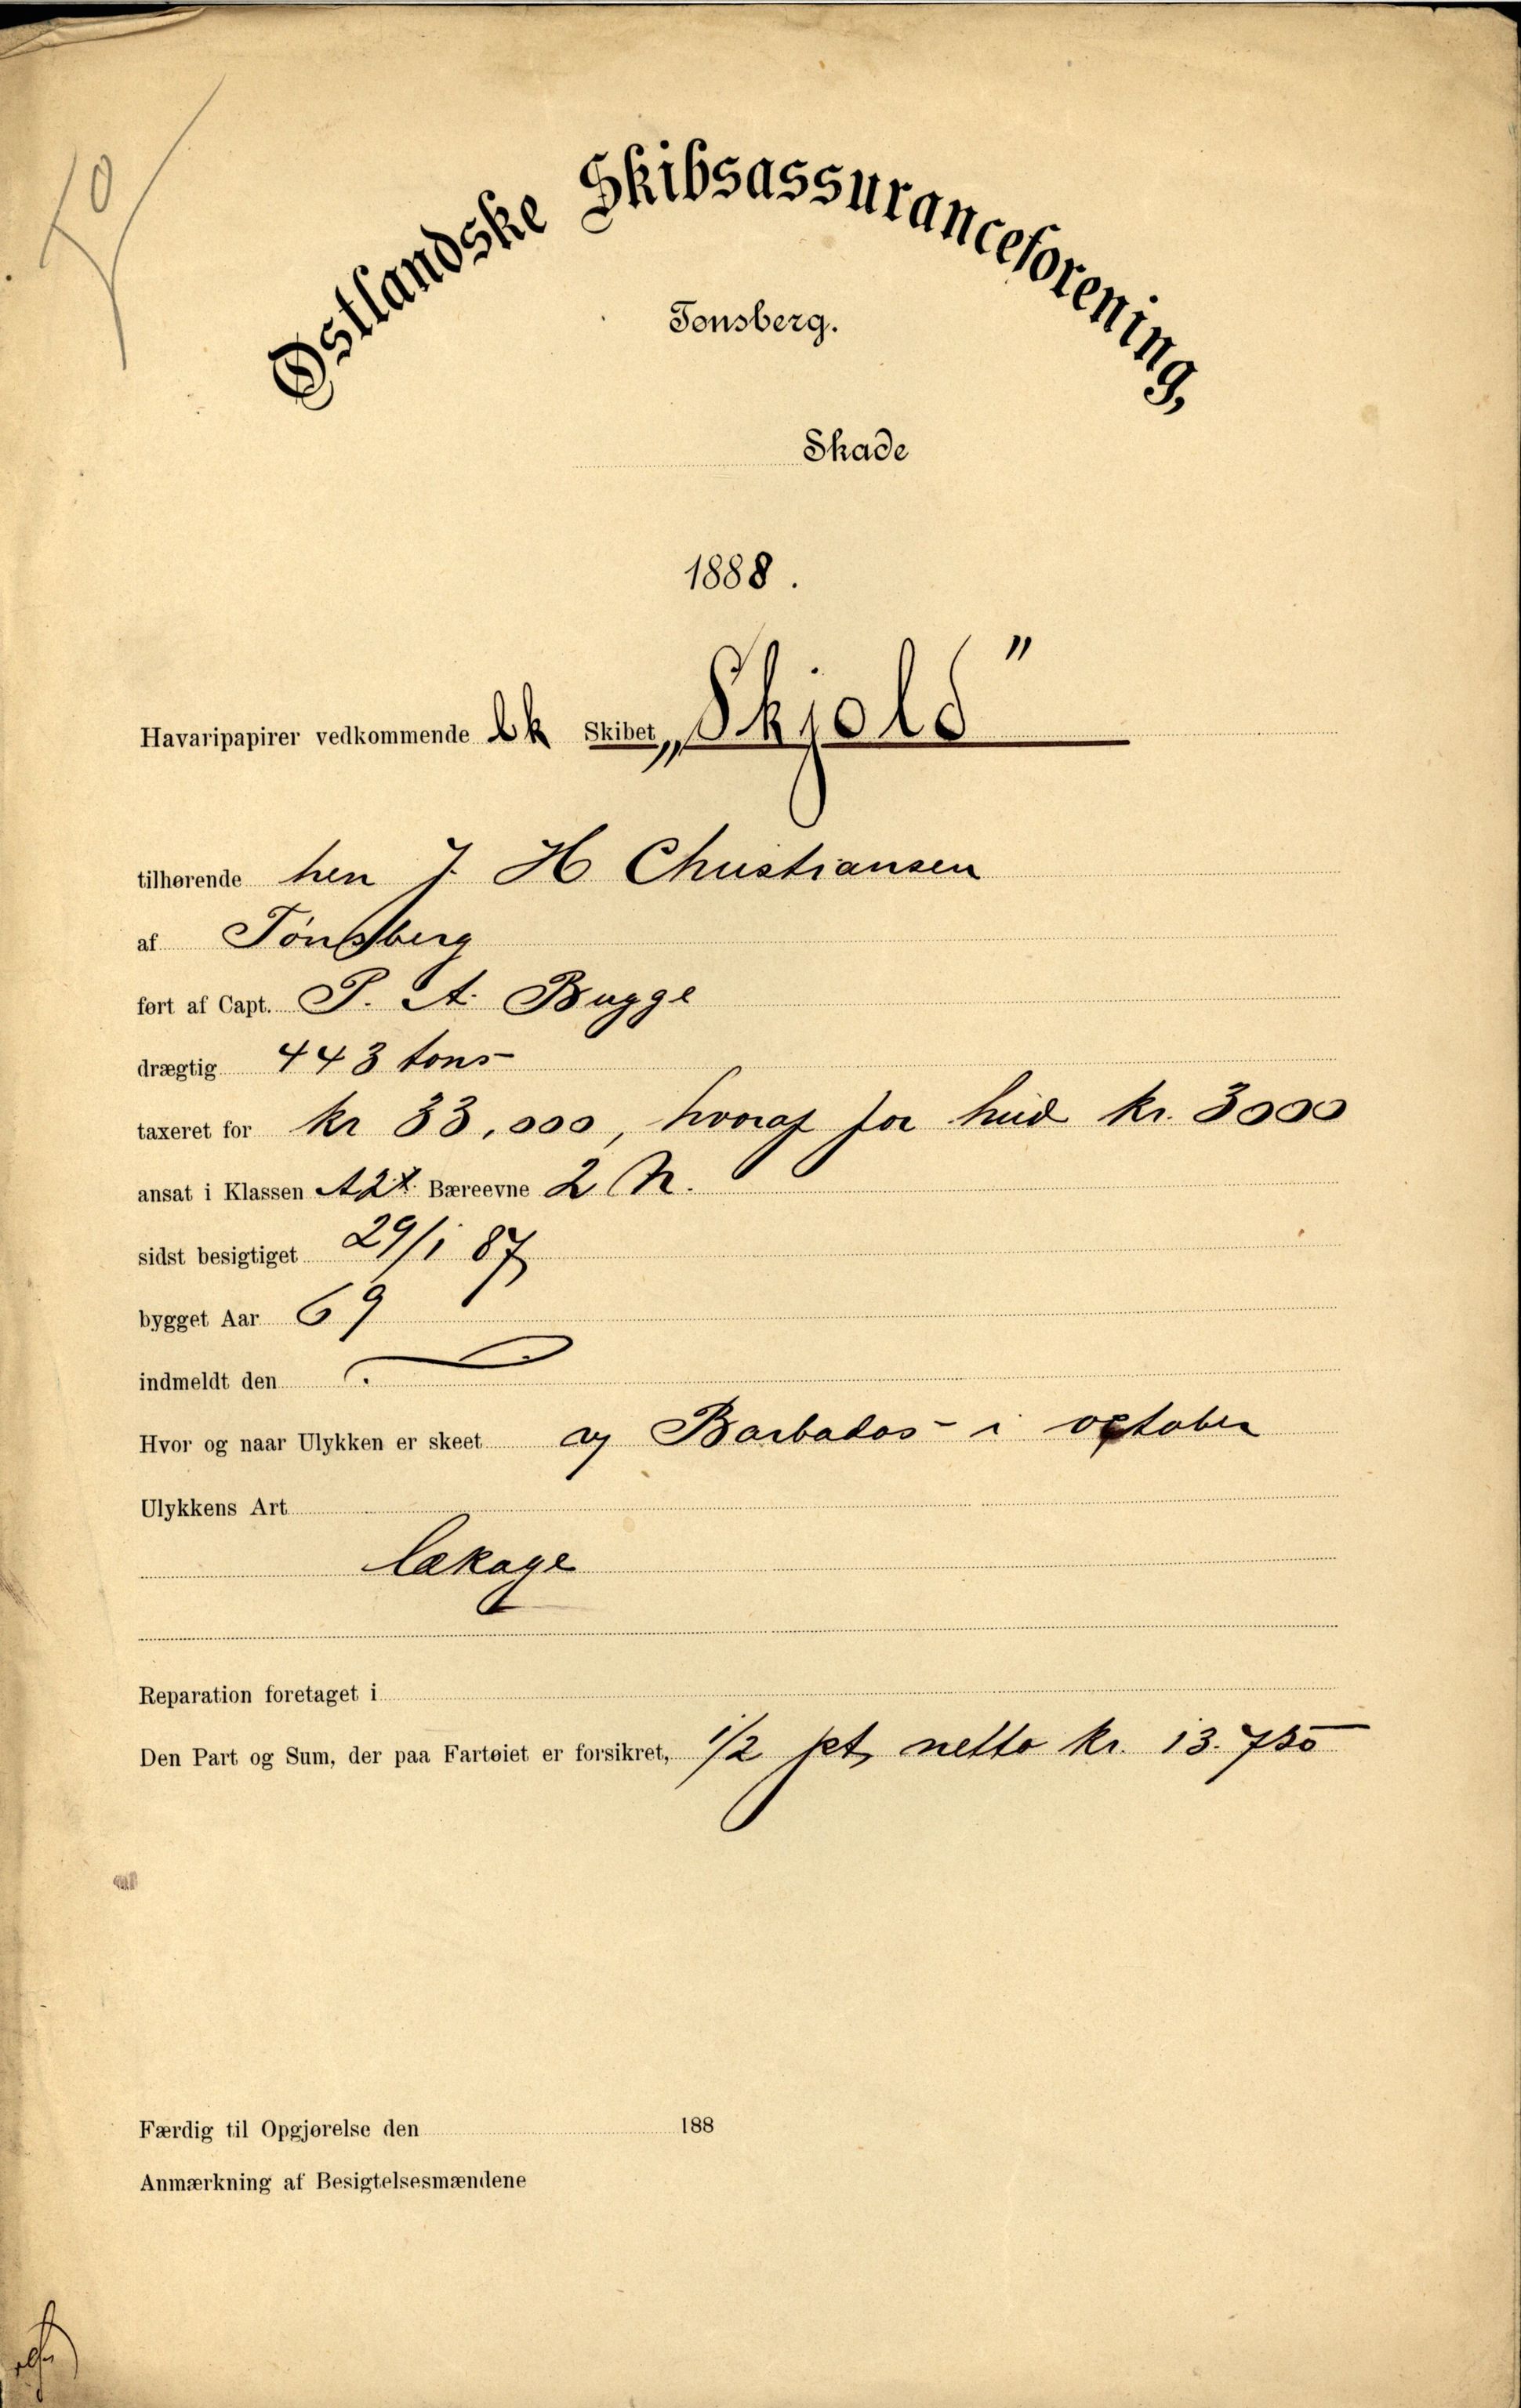 Østlandske Skibsassuranceforening,
Tønsberg.
Skade
1888.
Havaripapirer vedkommende bk Skibet „Skjold"
tilhørende hen J. H Christiansen
af Tønsberg
ført af Capt. P. A. Bugge
drægtig 443 tons
taxeret for kr 33,000, hvoraf for hud kr. 3000
ansat i Klassen A2 Bæreevne 2
sidst besigtiget 29/1 87
bygget Aar 69
indmeldt den
Hvor og naar Ulykken er skeet Barbados - i october
Ulykkens Art
lækage
Reparation foretaget i
Den Part og Sum, der paa Fartøiet er forsikret, 1/2 pt, netto kr. 13.750
Færdig til Opgjørelse den 188
Anmærkning af Besigtelsesmændene